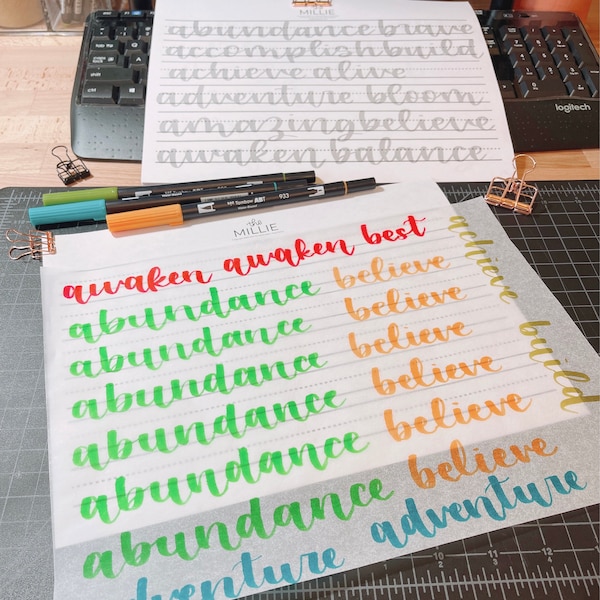 the
MILLIE
abundance brave
accomplish build
achieve alive
adventure bloom
amazing believe
awaken balance
logitech
Tombow ABT 933
the
MILLIE
awaken awaken best
abundance believe
abundance believe
abundance believe
abundance believe
abundance believe
abundance believe
adventure adventure
achieve build
10 11 12